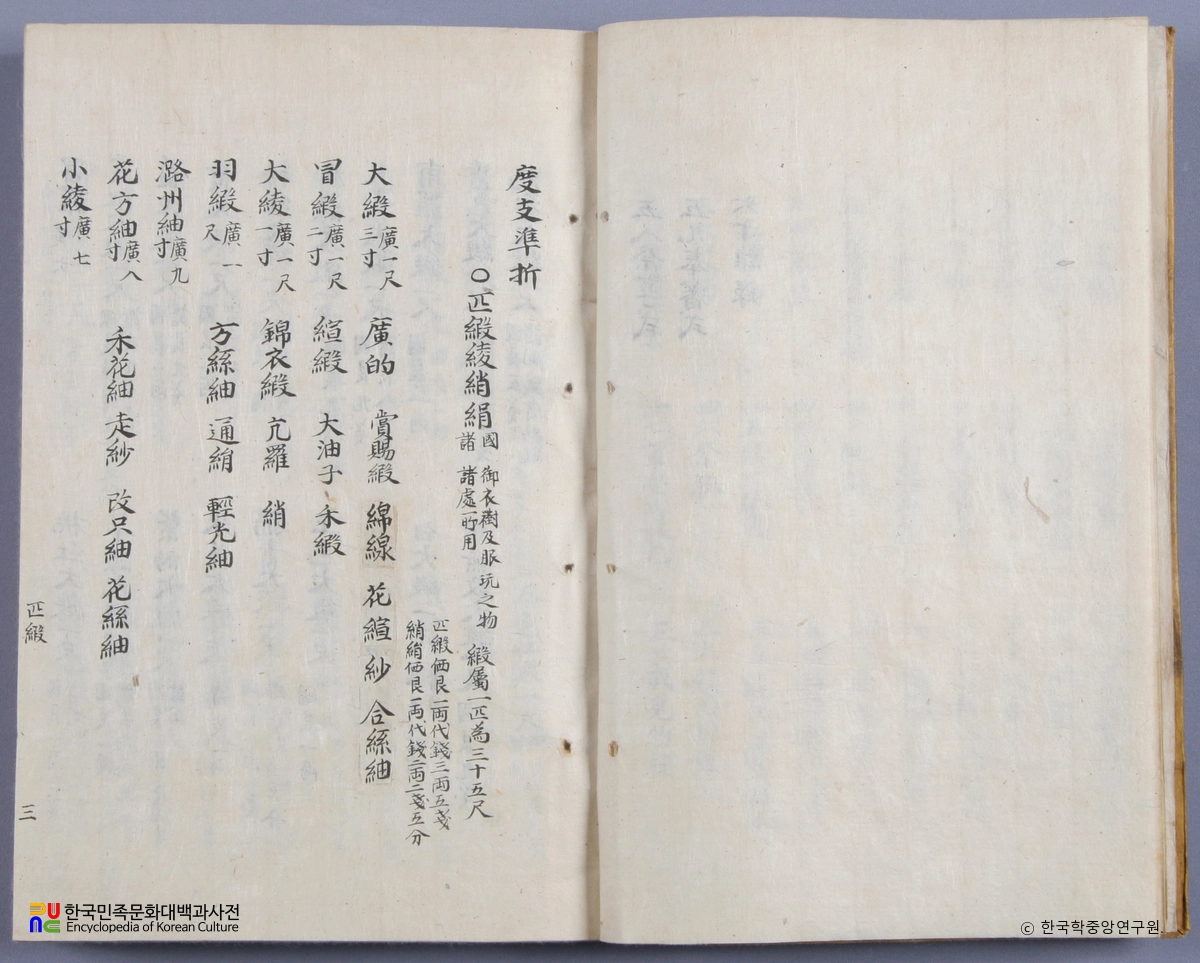 度支準折
○匹緞綾綃絹 國諸 御衣襨及服玩之物 諸處所用 緞屬一匹為三十五尺
匹緞価艮一両代錢三両五戔
綃絹価艮一両代錢二両二戔五分
大緞 廣一尺三寸 廣的 賞賜緞 綿線 花縇紗 合絲紬
冒緞 廣一尺二寸 縇緞 大油子 禾緞
大綾 廣一尺一寸 錦衣緞 亢羅 綃
羽緞 廣一尺 方絲紬 通絹 輕光紬
潞州紬 廣九寸
花方紬 廣八寸 禾花紬 走紗 改只紬 花絲紬
小綾 廣七寸
匹緞
三
한국민족문화대백과사전
Encyclopedia of Korean Culture
© 한국학중앙연구원